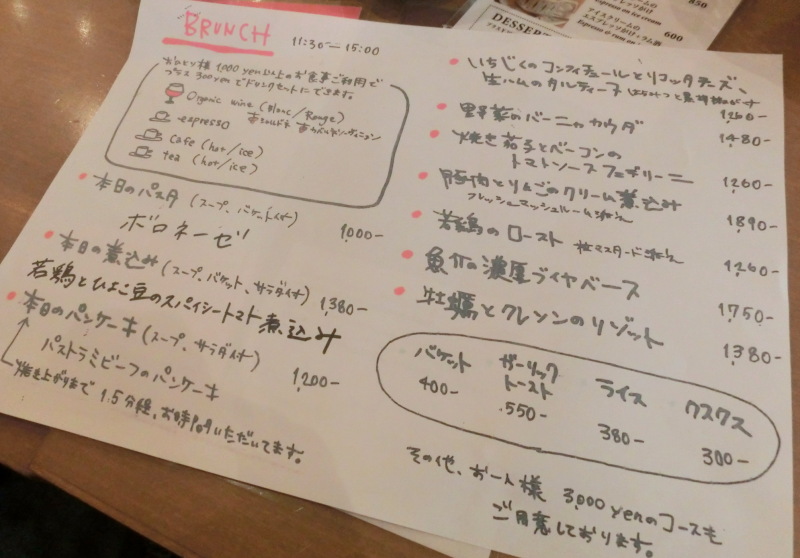 BRUNCH 11:30ー15:00
おひとり様 1,000 yen以上のお食事ご利用で
プラス 300 yen でドリンクセットにできます。
Organic wine (Blanc/Rouge)
espresso
cafe (hot/ice)
tea (hot/ice)
本日のパスタ (スープ、バケット付)
ボロネーゼ 1,000-
本日の煮込み (スープ、バケット、サラダ付) 1,380-
若鶏とひよこ豆のスパイシートマト煮込み
本日のパンケーキ (スープ、サラダ付)
パストラミビーフのパンケーキ 1,200-
焼き上がりまで 15分程、お時間いただいてます。
いちじくのコンフィチュールとリコッタチーズ、
生ハムのタルティーヌ 1,200-
野菜のバーニャカウダ 1,480-
焼き茄子とベーコンの
トマトソースフェデリーニ 1,260-
豚肉とりんごのクリーム煮込み
フレッシュマッシュルーム添え 1,890-
若鶏のロースト 粒マスタード添え 1,260-
魚介の濃厚ブイヤベース 1,750-
牡蠣とクレソンのリゾット 1,380-
バケット 400-
ガーリック
トースト 550-
ライス 380-
クスクス 300-
その他、お一人様 3,000 yenのコースも
ご用意しております
DESSERT
850
Espresso on ice cream
アイスクリームの
エスプレッソがけ・ラム酒 600